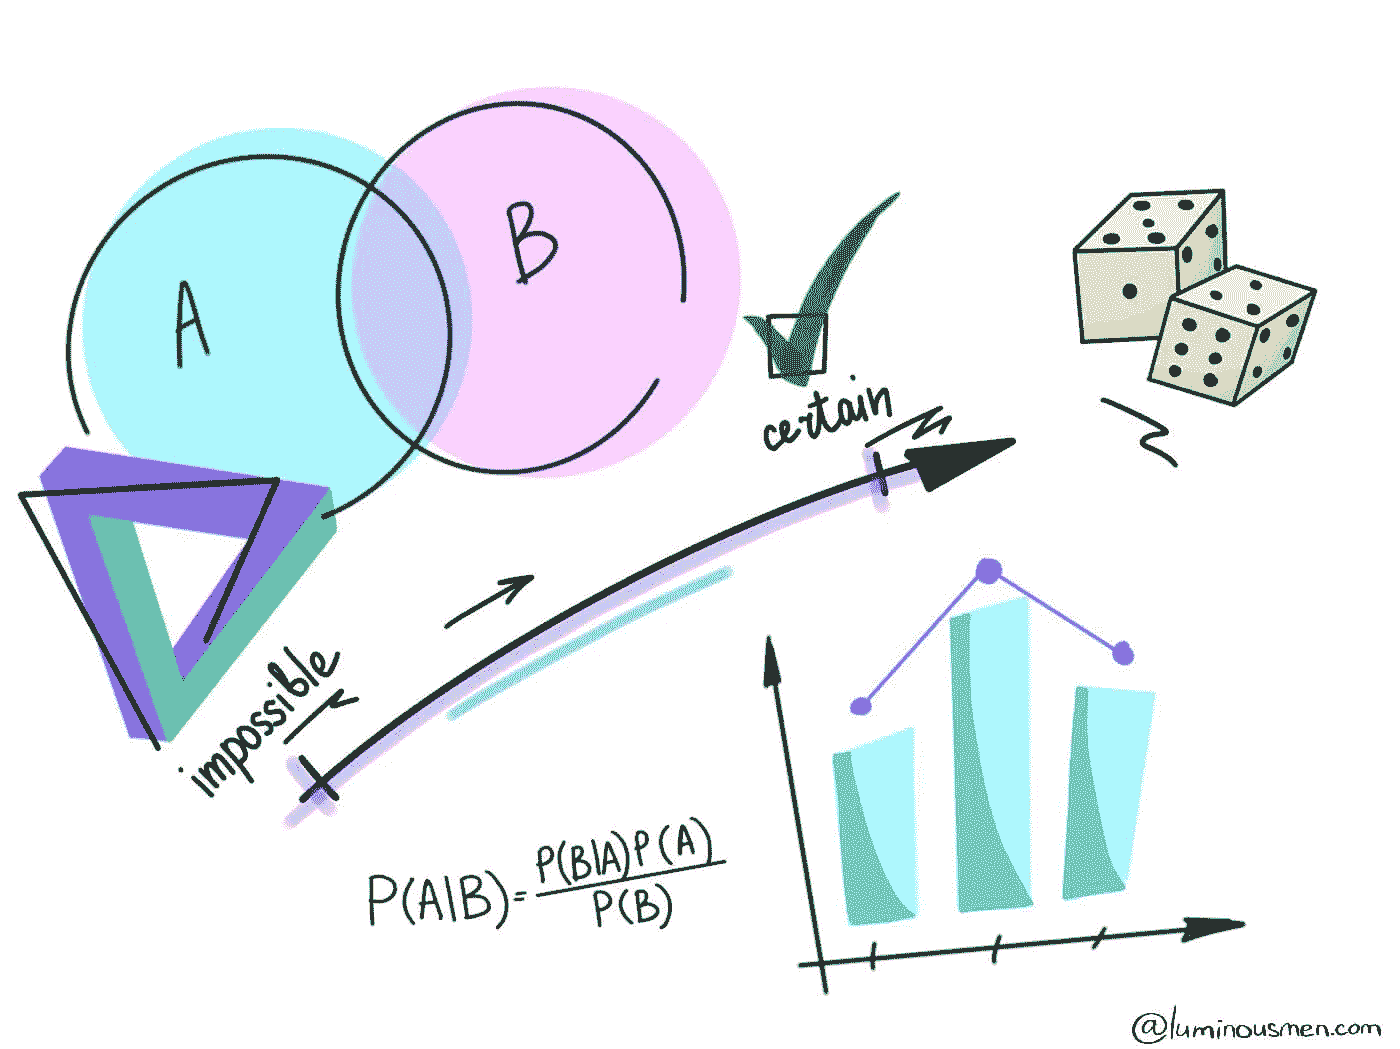 A
B
certain
impossible
P(A|B)=P(B|A)P(A)
P(B)
@luminousmen.com